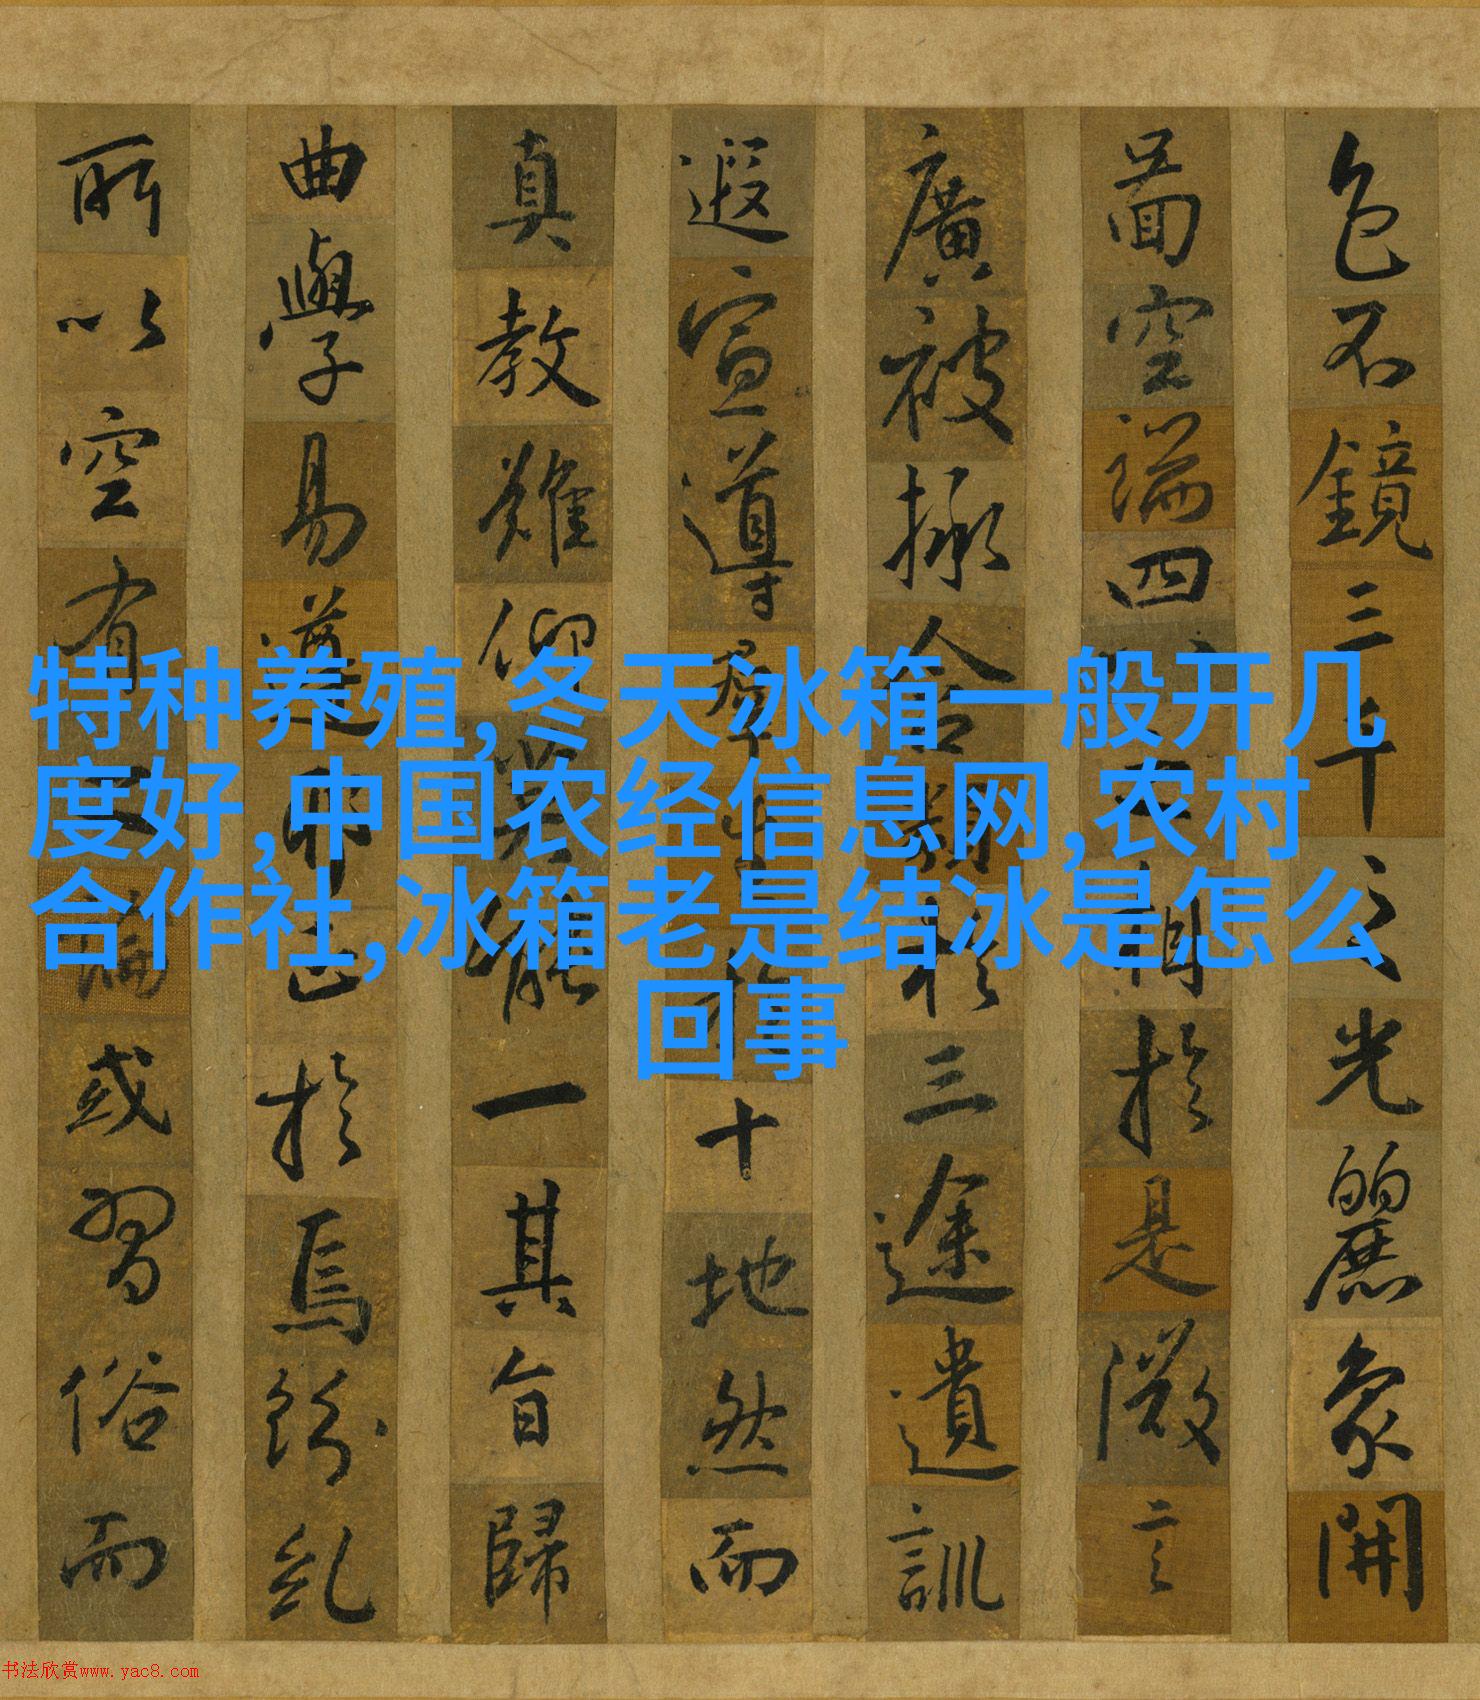 色不鏡三千之光麗象開
啚空端四八之相於是微言
廣被拯含類於三途遺訓
遐宣導群生於十地然而
真教難仰莫能一其旨歸
曲學易遵邪正於焉紛糺
所以空有之論或習俗而
特种养殖,冬天冰箱一般开几
度好,中国农经信息网,农村
合作社,冰箱老是结冰是怎么
回事
书法欣赏www.yac8.com